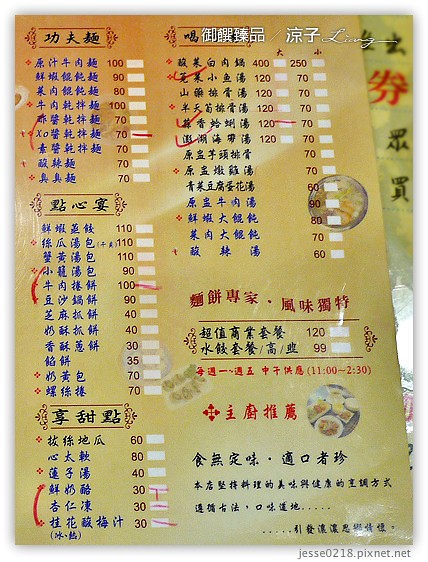 御饌臻品 / 涼子 Liang
功夫麵
原汁牛肉麵 100
鮮蝦餛飩麵 80
菜肉餛飩麵 80
牛肉乾拌麵 100
酢醬乾拌麵 70
Xo醬乾拌麵 70
素醬乾拌麵 70
酸辣麵 70
臭臭麵 70
點心宴
鮮蝦蒸餃 110
絲瓜湯包 110
蟹黃湯包 110
小籠湯包 90
牛肉捲餅 100
豆沙鍋餅 90
芝麻抓餅 40
奶酥抓餅 40
香酥蔥餅 30
餡餅 35
奶黃包 70
螺絲捲 70
享甜點
拔絲地瓜 60
心太軟 80
蓮子湯 40
鮮奶酪 30
杏仁凍 30
桂花酸梅汁 30
(冰、熱)
喝
大 小
酸菜白肉鍋 400 250
莧菜小魚湯 120 70
山藥排骨湯 120 70
半天筍排骨湯 120 70
蒜香蛤蜊湯 120 70
澎湖海帶湯 120 70
原盅芋頭排骨 70
原盅燉雞湯 70
青菜豆腐蛋花湯 60
原盅牛肉湯 90
鮮蝦大餛飩 70
菜肉大餛飩 70
酸辣湯 60
麵餅專家·風味獨特
超值商業套餐 120
水餃套餐/高/韭 99
每週一~週五 中午供應 (11:00~2:30)
主廚推薦
食無定味·適口者珍
本店堅持料理的美味與健康的烹調方式
遵循古法，口味道地.....
.....引發濃濃思鄉情懷。
券
眾
買
jesse0218.pixnet.net